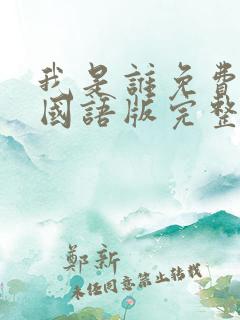 我是誰免費
國語版完整
鄭新
未任同意禁止轉載